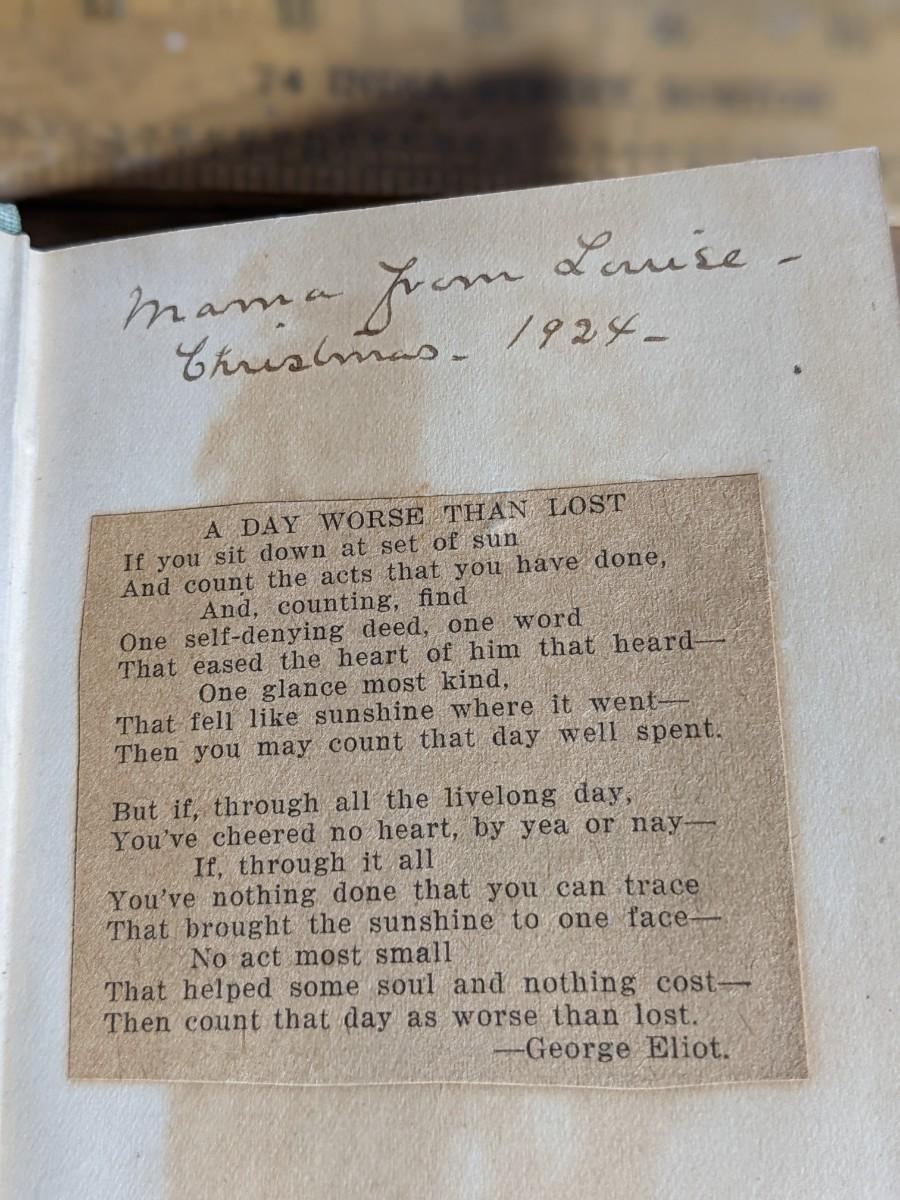 74 INDIA STREET BOSTON
Mama from Louise -
Christmas - 1924 -
A DAY WORSE THAN LOST
If you sit down at set of sun
And count the acts that you have done,
And, counting, find
One self-denying deed, one word
That eased the heart of him that heard—
One glance most kind,
That fell like sunshine where it went—
Then you may count that day well spent.
But if, through all the livelong day,
You've cheered no heart, by yea or nay—
If, through it all
You've nothing done that you can trace
That brought the sunshine to one face—
No act most small
That helped some soul and nothing cost—
Then count that day as worse than lost.
—George Eliot.